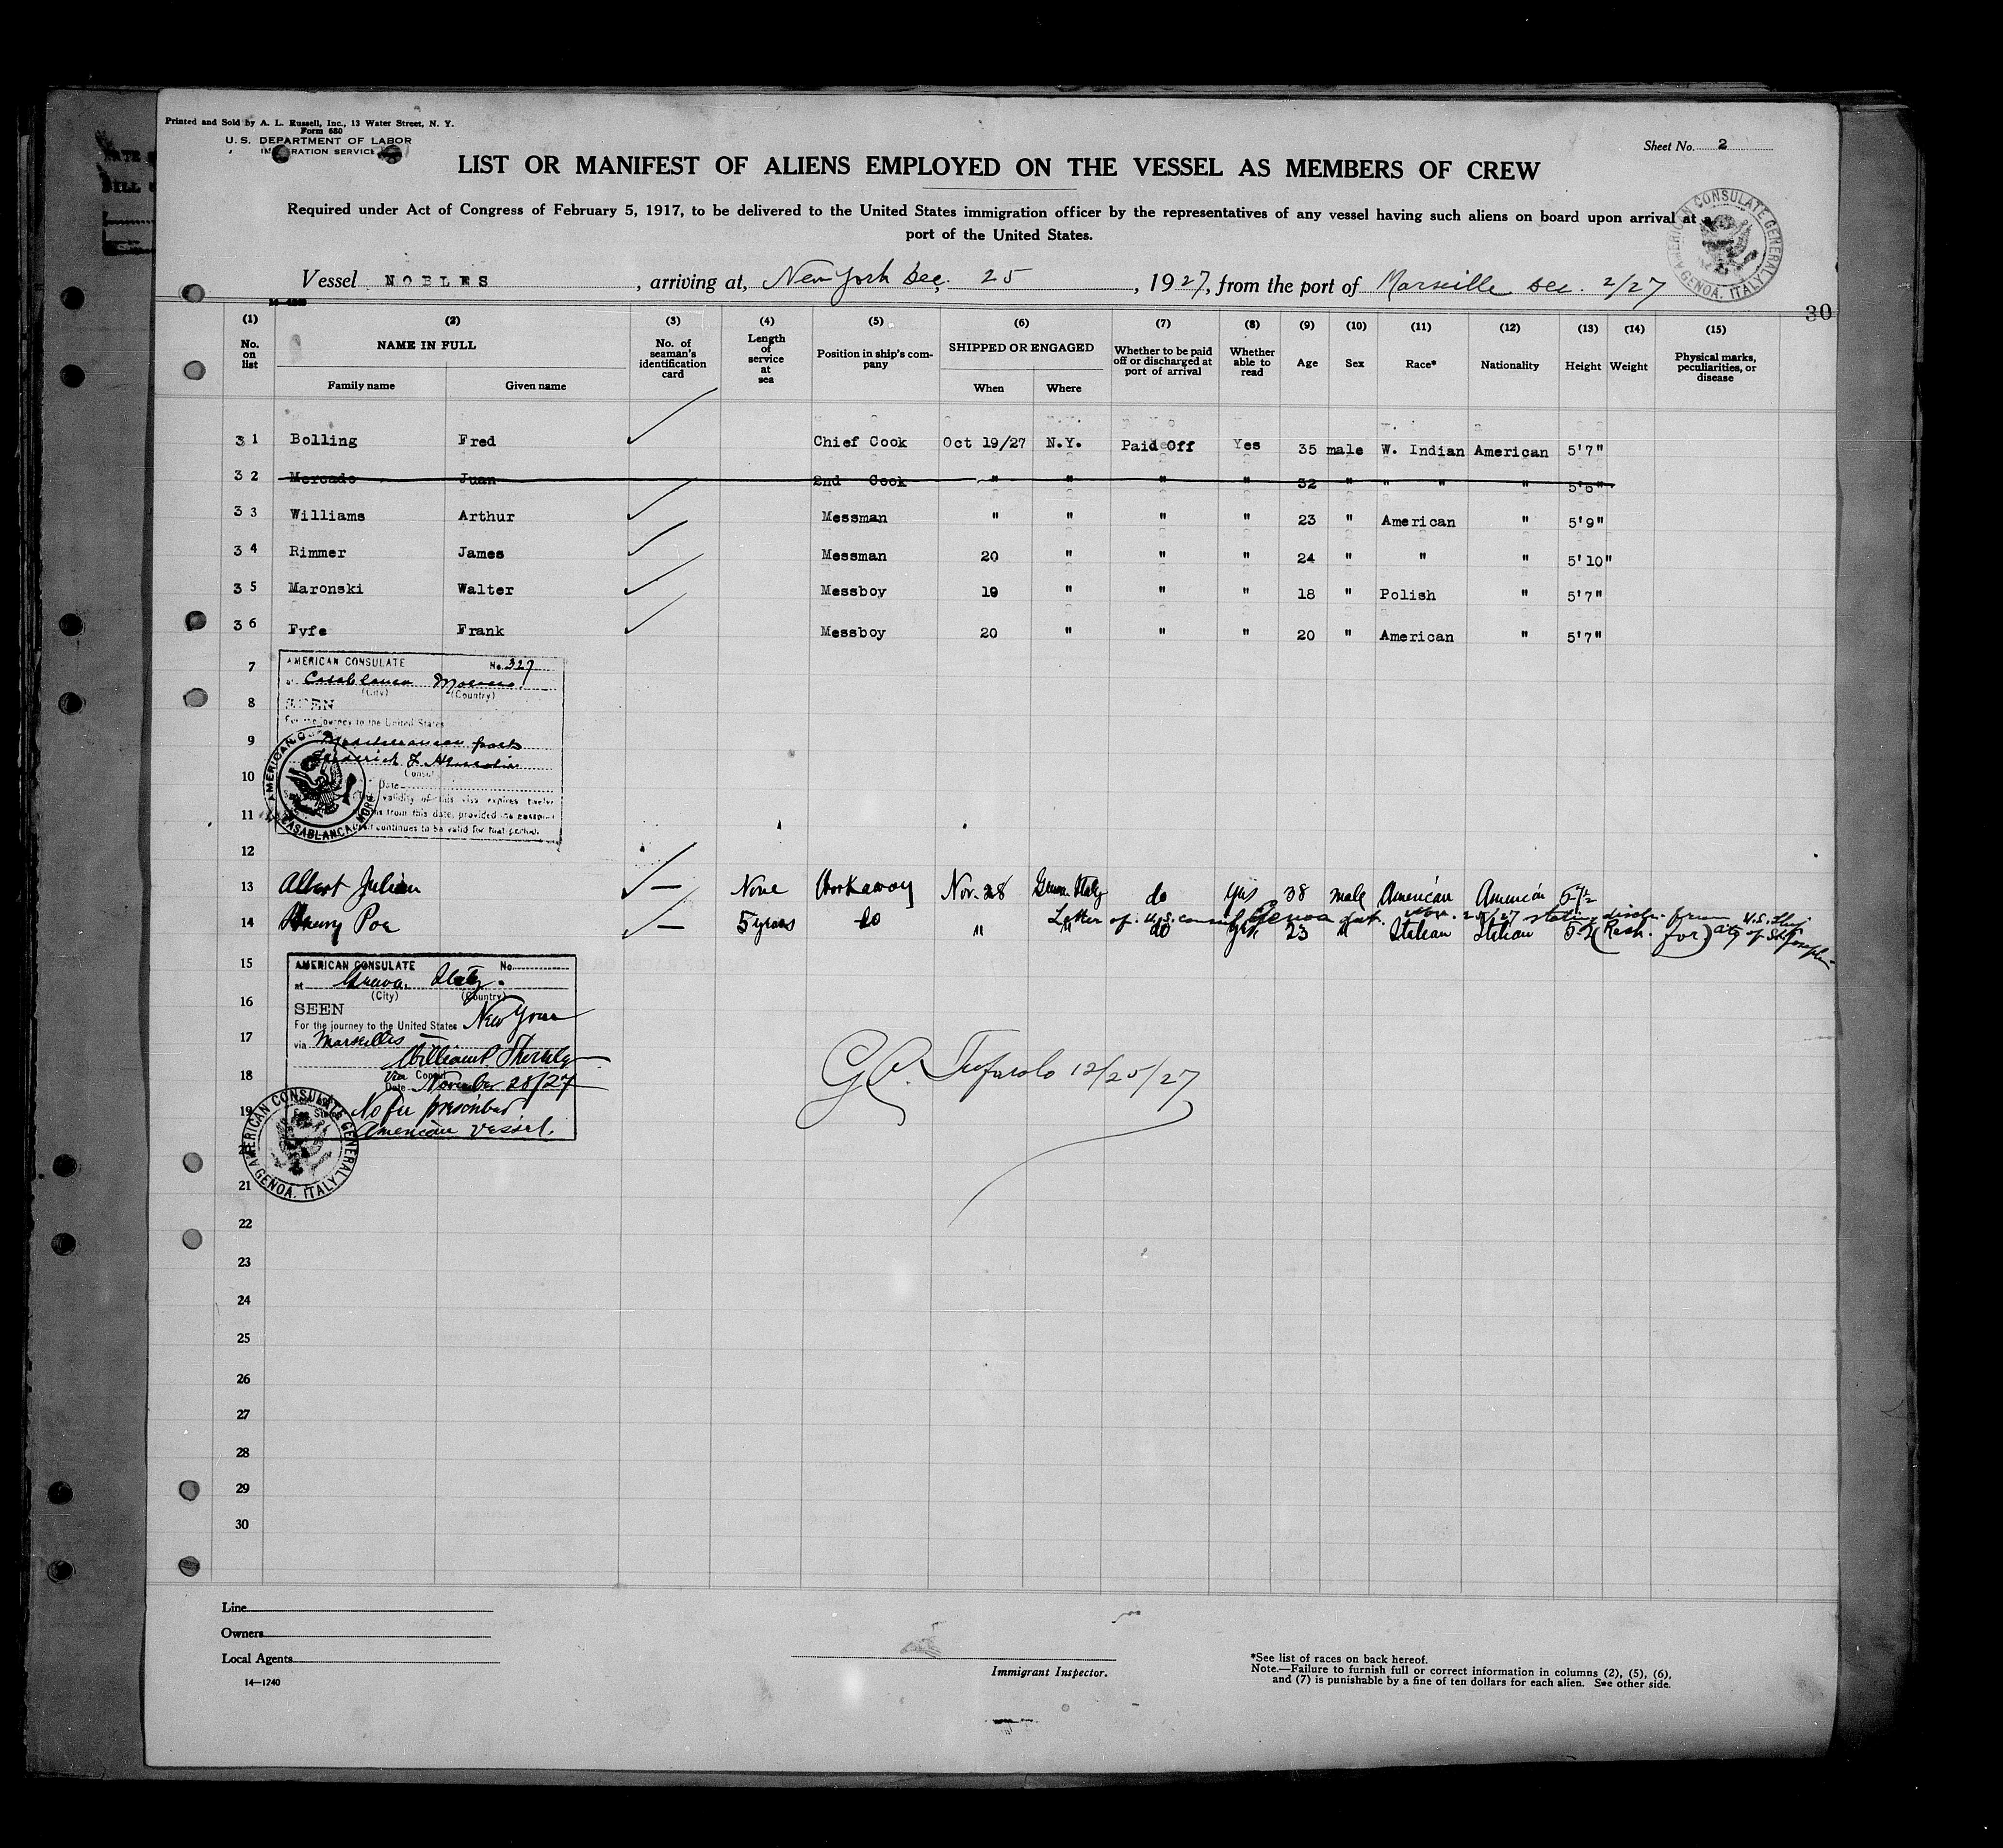 Printed and Sold by A. L. Russell, Inc., 13 Water Street, N. Y.
Form 680
U. S. DEPARTMENT OF LABOR
IMMIGRATION SERVICE
Sheet No. 2
LIST OR MANIFEST OF ALIENS EMPLOYED ON THE VESSEL AS MEMBERS OF CREW
Required under Act of Congress of February 5, 1917, to be delivered to the United States immigration officer by the representatives of any vessel having such aliens on board upon arrival at a
port of the United States.
AMERICAN CONSULATE GENERAL GENOA, ITALY
Vessel NOBLES, arriving at, New York Dec. 25, 1927, from the port of Marseille Dec. 2/27
30
(1) (2) (3) (4) (5) (6) (7) (8) (9) (10) (11) (12) (13) (14) (15)
No. on list NAME IN FULL Family name Given name No. of seaman's identification card Length of service at sea Position in ship's company SHIPPED OR ENGAGED When Where Whether to be paid off or discharged at port of arrival Whether able to read Age Sex Race* Nationality Height Weight Physical marks, peculiarities, or disease
31 Bolling Fred Chief Cook Oct 19/27 N.Y. Paid Off Yes 35 male W. Indian American 5'7"
32 Mercado Juan 2nd Cook " " " " 32 " " " " 5'6"
33 Williams Arthur Messman " " " " 23 " American " 5'9"
34 Rimmer James Messman 20 " " " 24 " " " 5'10"
35 Maronski Walter Messboy 19 " " " 18 " Polish " 5'7"
36 Fyfe Frank Messboy 20 " " " 20 " American " 5'7"
7
AMERICAN CONSULATE No. 327
at Casablanca Morocco
(City) (Country)
8
SEEN
For the journey to the United States
9
Mediterranean ports
Frederick
Consul
10
Date
The validity of this visa expires twelve
11
months from this date, provided the passport
continues to be valid for that period.
AMERICAN CASABLANCA, MOROCCO
12
13 Albert Julian None Workaway Nov. 28 Genoa Italy do yes 38 male American American 5-7½
Letter of U.S. consul Genoa dat. Nov. 25/27 stating disch. from U.S. ship
14 Henry Poe 5 years do " " do yes 23 " Italian Italian 5-2 (Resh. for)
15
AMERICAN CONSULATE No.
at Genoa, Italy.
(City) (Country)
16
SEEN
For the journey to the United States New York
17
via Marseilles
William P.
18
Vice Consul
Date November 28/27
19
No fee prescribed
American vessel.
20
AMERICAN CONSULATE GENERAL GENOA, ITALY
12/25/27
21
22
23
24
25
26
27
28
29
30
Line
Owners
Local Agents
14—1740
Immigrant Inspector.
*See list of races on back hereof.
Note.—Failure to furnish full or correct information in columns (2), (5), (6),
and (7) is punishable by a fine of ten dollars for each alien. See other side.